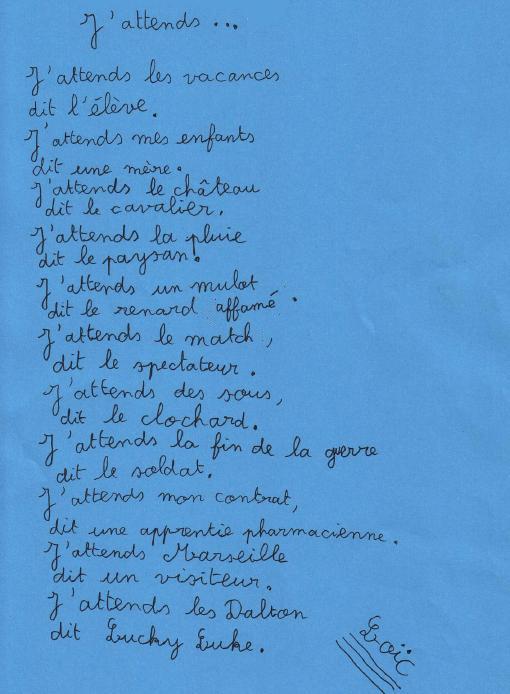 J'attends ...
J'attends les vacances
dit l'élève.
J'attends mes enfants
dit une mère.
J'attends le château
dit le cavalier.
J'attends la pluie
dit le paysan.
J'attends un mulot
dit le renard affamé.
J'attends le match,
dit le spectateur.
J'attends des sous,
dit le clochard.
J'attends la fin de la guerre
dit le soldat.
J'attends mon contrat,
dit une apprentie pharmacienne.
J'attends Marseille
dit un visiteur.
J'attends les Dalton
dit Lucky Luke.
Loïc